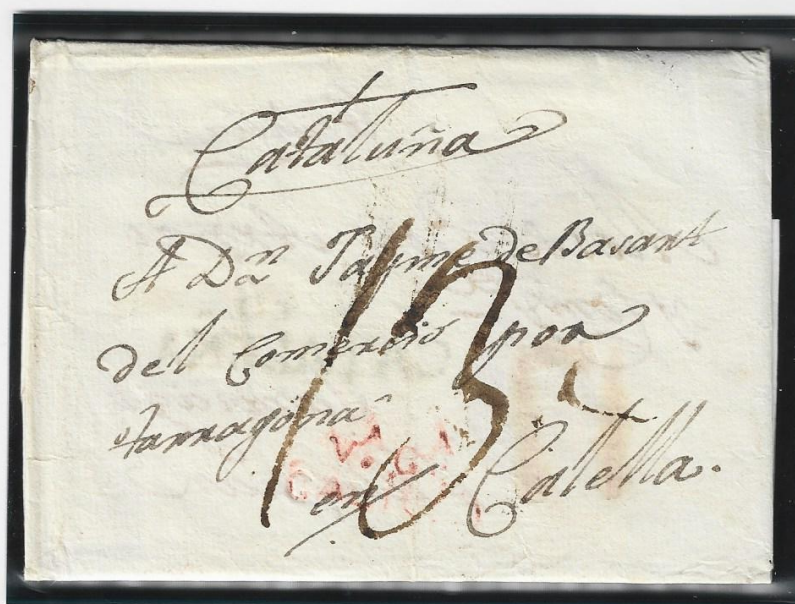 Cataluña
A Dn. Jayme de Basart
del Comercio por
tarragona
13
en Calella.